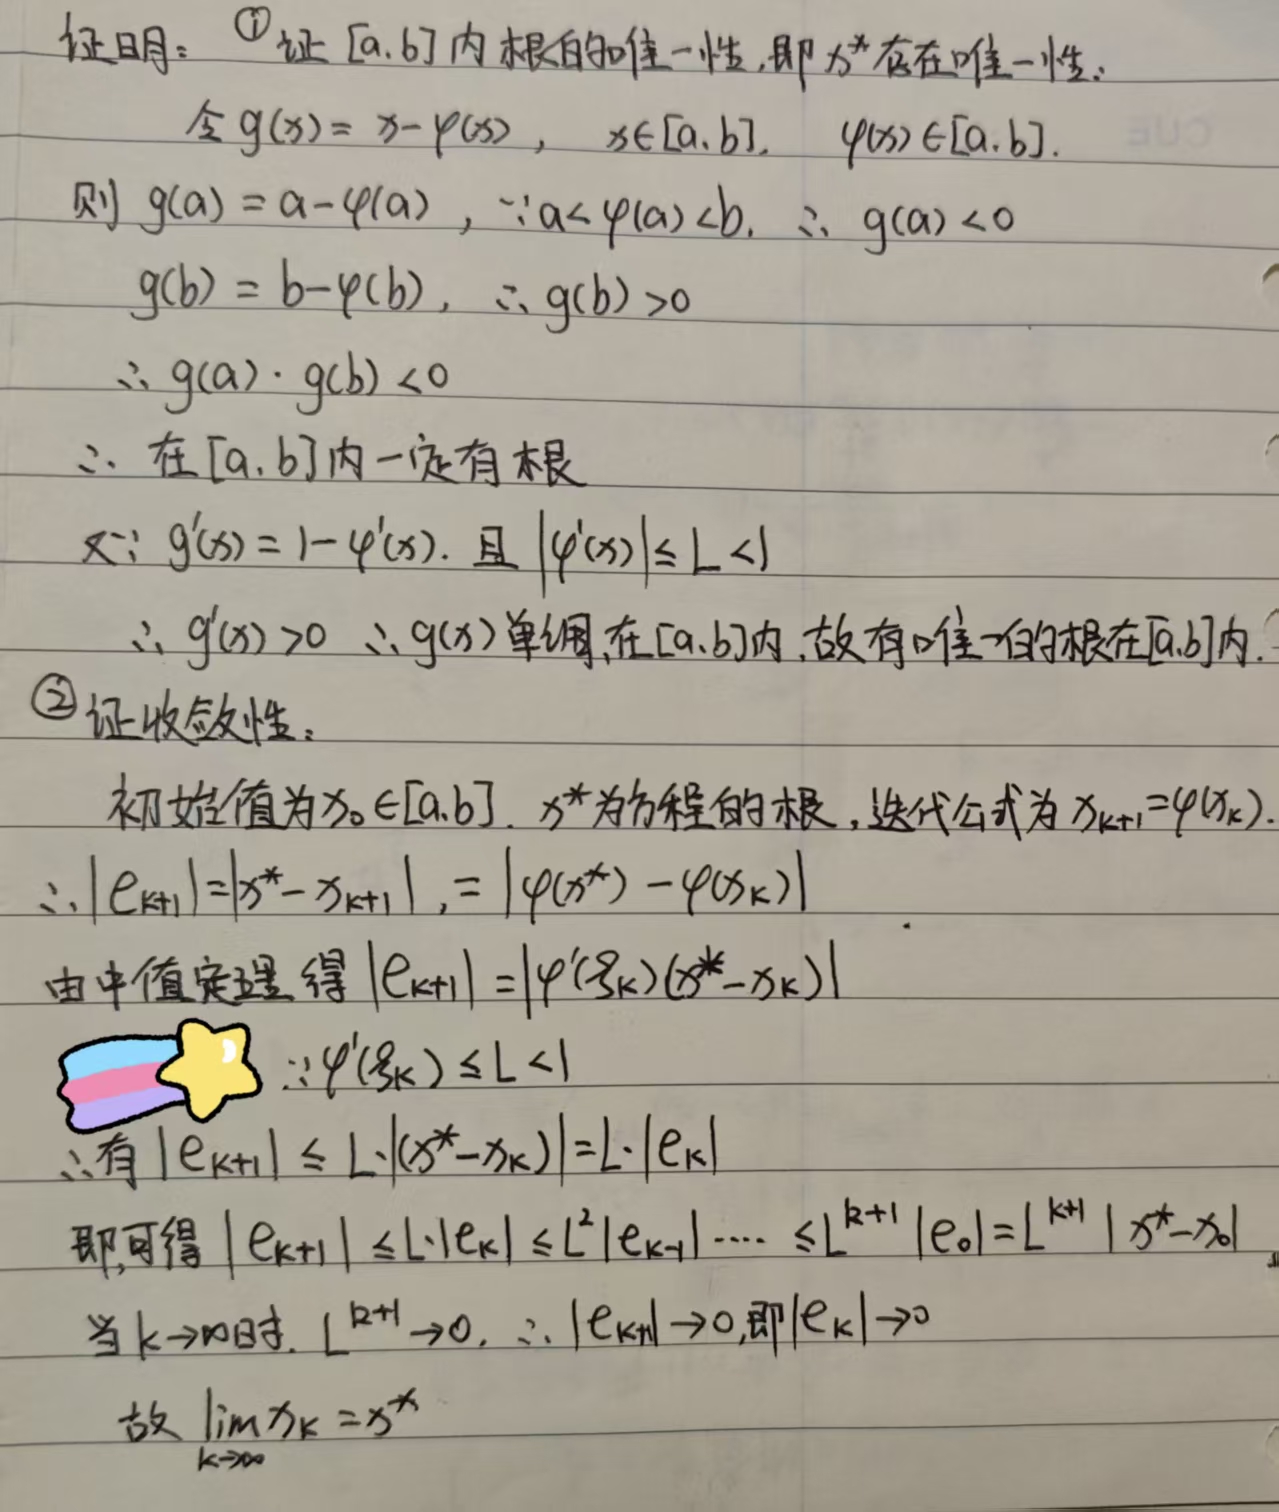 证明：①证 [a.b] 内根的唯一性,即 x* 存在唯一性.
令 g(x) = x-φ(x) , x∈[a.b]. φ(x)∈[a.b].
则 g(a) = a-φ(a) , ∵a<φ(a)<b. ∴ g(a)<0
g(b) = b-φ(b), ∴g(b)>0
∴ g(a)·g(b)<0
∴ 在[a.b]内一定有根
又∵ g'(x) = 1-φ'(x). 且 |φ'(x)| ≤ L <1
∴ g'(x)>0 ∴g(x)单调,在[a.b]内,故有唯一的根在[a.b]内.
②证收敛性:
初始值为x₀∈[a.b]. x*为方程的根,迭代公式为 xₖ₊₁=φ(xₖ).
∴|eₖ₊₁|=|x*-xₖ₊₁|,=|φ(x*)-φ(xₖ)|
由中值定理得|eₖ₊₁|=|φ'(ξₖ)(x*-xₖ)|
∵φ'(ξₖ) ≤ L <1
∴有|eₖ₊₁| ≤ L·|(x*-xₖ)|=L·|eₖ|
即可得|eₖ₊₁| ≤L·|eₖ| ≤L²|eₖ₋₁| ···· ≤Lᵏ⁺¹|e₀|=Lᵏ⁺¹|x*-x₀|
当k→∞时. Lᵏ⁺¹→0. ∴|eₖ₊₁|→0,即|eₖ|→0
故 lim xₖ = x*
k→∞